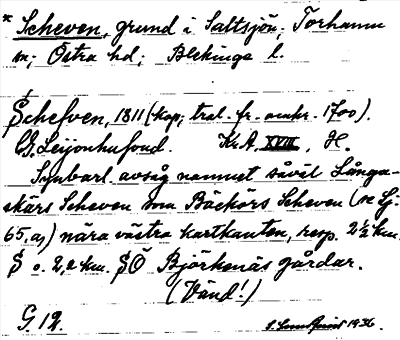 * Scheven, grund i Saltsjön; Torhamn
sn; Östra hd; Blekinge l.
Schefven, 1811 (kop; tral. fr. omkr. 1700).
G. Leijonhufvud. Kr. A. XVIII, H.
Synbarl. avsåg namnet såväl Långa-
skärs Scheven som Bäckörs Scheven (se Sj.
65, a,) nära västra kartkanten, resp. 2 ½ km.
S o. 2,2 km. SÖ Björkenäs gårdar.
(Vänd!)
G 12. 1936.